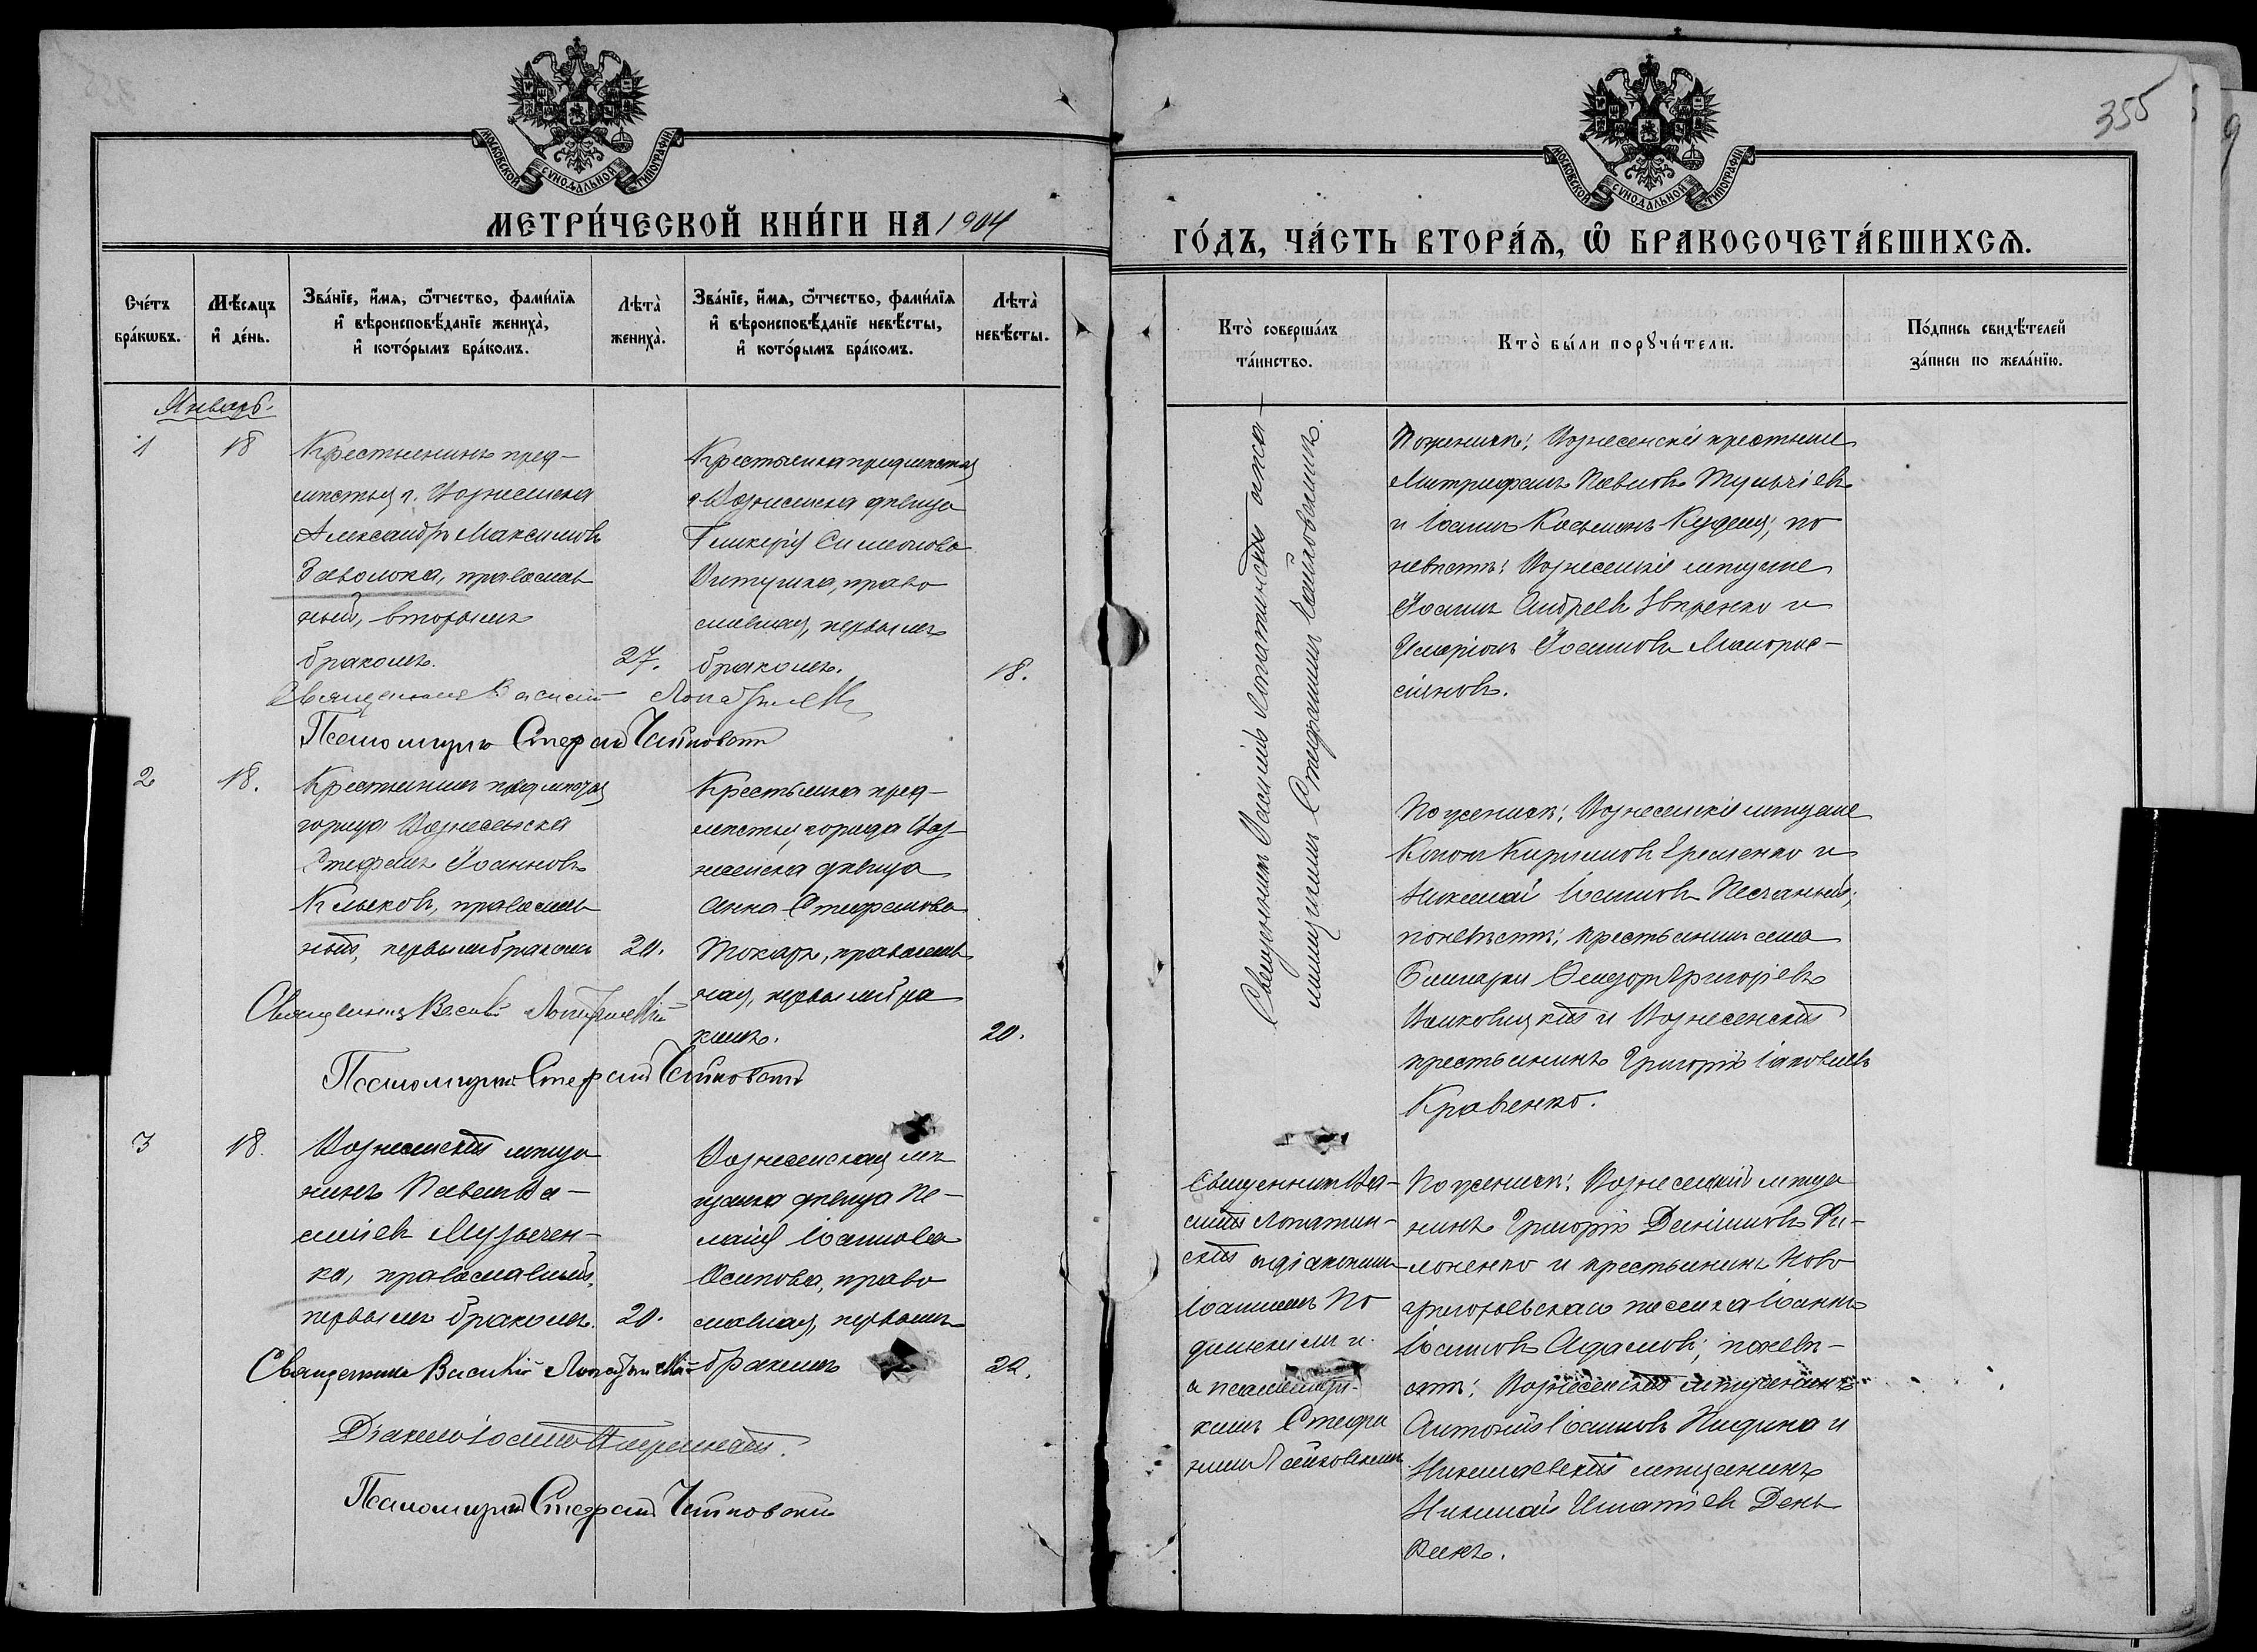 355
МОСКОВСКОЙ СУНОДАЛЬНОЙ ТИПОГРАФІИ
МЕТРИ́ЧЕСКОЙ КНИ́ГИ НА 1904
Сче́тъ бра́кѡвъ.
Мѣ́сяцъ и҆ де́нь.
Зва́нїе, и҆́мя, ѻ҆́тчество, фами́лїя
и҆ вѣроисповѣ́данїе жениха̀,
и҆ кото́рымъ бра́комъ.
Лѣта̀ жениха̀.
Зва́нїе, и҆́мя, ѻ҆́тчество, фами́лїя
и҆ вѣроисповѣ́данїе невѣ́сты,
и҆ кото́рымъ бра́комъ.
Лѣта̀ невѣ́сты.
Январь.
1
18
Крестьянинъ пред-
мѣстья г. Вознесенска
Александръ Максимовъ
Заволока, православ
ный, вторымъ
бракомъ.
27.
Крестьянка предмѣстья
г. Вознесенска дѣвица
Гликерія Симеонова
православная, первымъ
бракомъ.
18.
Священникъ Василій Лопатинскій
Псаломщикъ Стефанъ Чайковскій
2
18.
Крестьянинъ предмѣстья
города Вознесенска
Стефанъ Іоанновъ
Клыковъ, православ
ный, первымъ бракомъ
20.
Крестьянка пред-
мѣстья города Воз
несенска дѣвица
Анна Стефанова
Токарь, православ
ная, первымъ бра
комъ.
20.
Священникъ Василій Лопатинскій
Псаломщикъ Стефанъ Чайковскій
3
18.
Вознесенскій мѣща
нинъ Павелъ Ва-
силіевъ Музычен-
ко, православный,
первымъ бракомъ.
20.
Вознесенская мѣ
щанка дѣвица Пе-
лагія Іоаннова
Осипова, право
славная, первымъ
бракомъ
22.
Священникъ Василій Лопатинскій
Діаконъ Іоаннъ
Псаломщикъ Стефанъ Чайковскій
МОСКОВСКОЙ СУНОДАЛЬНОЙ ТИПОГРАФІИ
ГО́ДЪ, ЧА́СТЬ ВТОРА́Я, Ѽ БРАКОСОЧЕТА́ВШИХСЯ.
Кто̀ соверша́лъ
та́инство.
Кто̀ бы́ли порꙋчи́тели.
По́дпись свидѣ́телей
за́писи по жела́нїю.
Священникъ Василій Лопатинскій съ пса-
ломщикомъ Стефаномъ Чайковскимъ.
По женихѣ: Вознесенскіе крестьяне
Митрофанъ Павловъ
и Іоаннъ Косьминъ по
невѣстѣ: Вознесенскіе мѣщане
Іоаннъ Андреевъ и
Иларіонъ Іоанновъ
По женихѣ: Вознесенскіе мѣщане
Кононъ Кирилловъ Еременко и
Николай Іоанновъ Песчаный;
по невѣстѣ: крестьянинъ села
Григорьевъ
и Вознесенскій
крестьянинъ Григорій Іаковлевъ
Кравченко.
Священникъ Ва-
силій Лопатин-
скій съ діакономъ
Іоанномъ
и
псаломщи-
комъ Стефа
номъ Чайковскимъ
По женихѣ: Вознесенскій мѣща
нинъ Григорій Даніиловъ Фи-
лоненко и крестьянинъ Ново
григорьевскаго поселка Іоаннъ
Іоанновъ Адамовъ; по невѣ-
стѣ: Вознесенскій мѣщанинъ
Антоній Іоанновъ и
Николаевскій мѣщанинъ
Николай Игнатіевъ